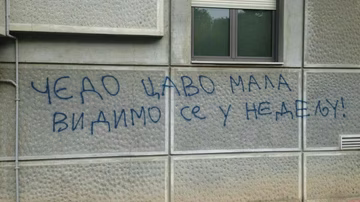 ЧЕДО ЦАВО МАЛА
ВИДИМО Се У НЕДЕЉУ!